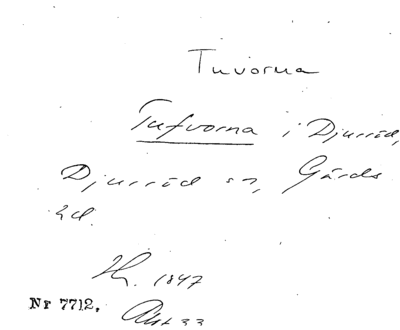 Tuvorna
Tufvorna i Djurröd,
Djurröd sn, Gärds
hd.
1847
Nr 7712. Akt 33